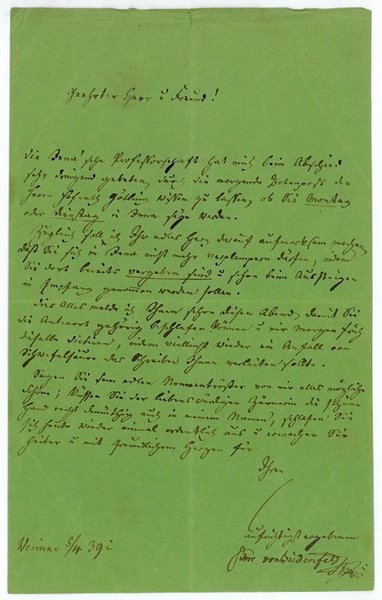 Geehrter Herr u Freund!
Die Jena'sche Professorschaft hat mich beim Abschied
sehr dringend gebeten, durch die morgende Botenpost den
Herrn Hofrath Göttling wissen zu lassen, ob Sie Montag
oder Dienstag in Jena seyn werden.
Zugleich soll ich Ihr edles Herz darauf aufmerksam machen,
daß Sie sich in Jena nicht mehr verplempern dürfen, indem
Sie dort bereits vergeben sind u schon beim Aussteigen
in Empfang genommen werden sollen.
Dies Alles melde ich Ihnen schon diesen Abend, damit Sie
die Antwort gehörig beschlafen können u mir Morgen früh
dieselbe dictiren, indem vielleicht wieder ein Anfall von
das Schreiben Ihnen verleiden sollte.
Sagen Sie dem edlen von mir alles mögliche
Schöne, küssen Sie der liebenswürdigen die schöne
Hand recht demüthig auch in meinem Namen, schlafen Sie
sich heute wieder einmal ordentlich aus u erwachen Sie
heiter u mit freundlichem Herzen für
Ihren
aufrichtigst ergebenen
von Biedenfeld
Weimar 5/4 39